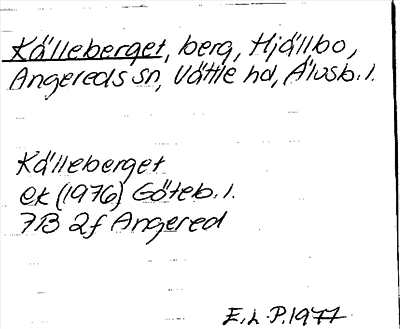 Källeberget, berg, Hjällbo,
Angereds sn, Vättle hd, Älvsb. l.
Källeberget
ek (1976) Göteb. l.
7B 2f Angered
E. L. P. 1977